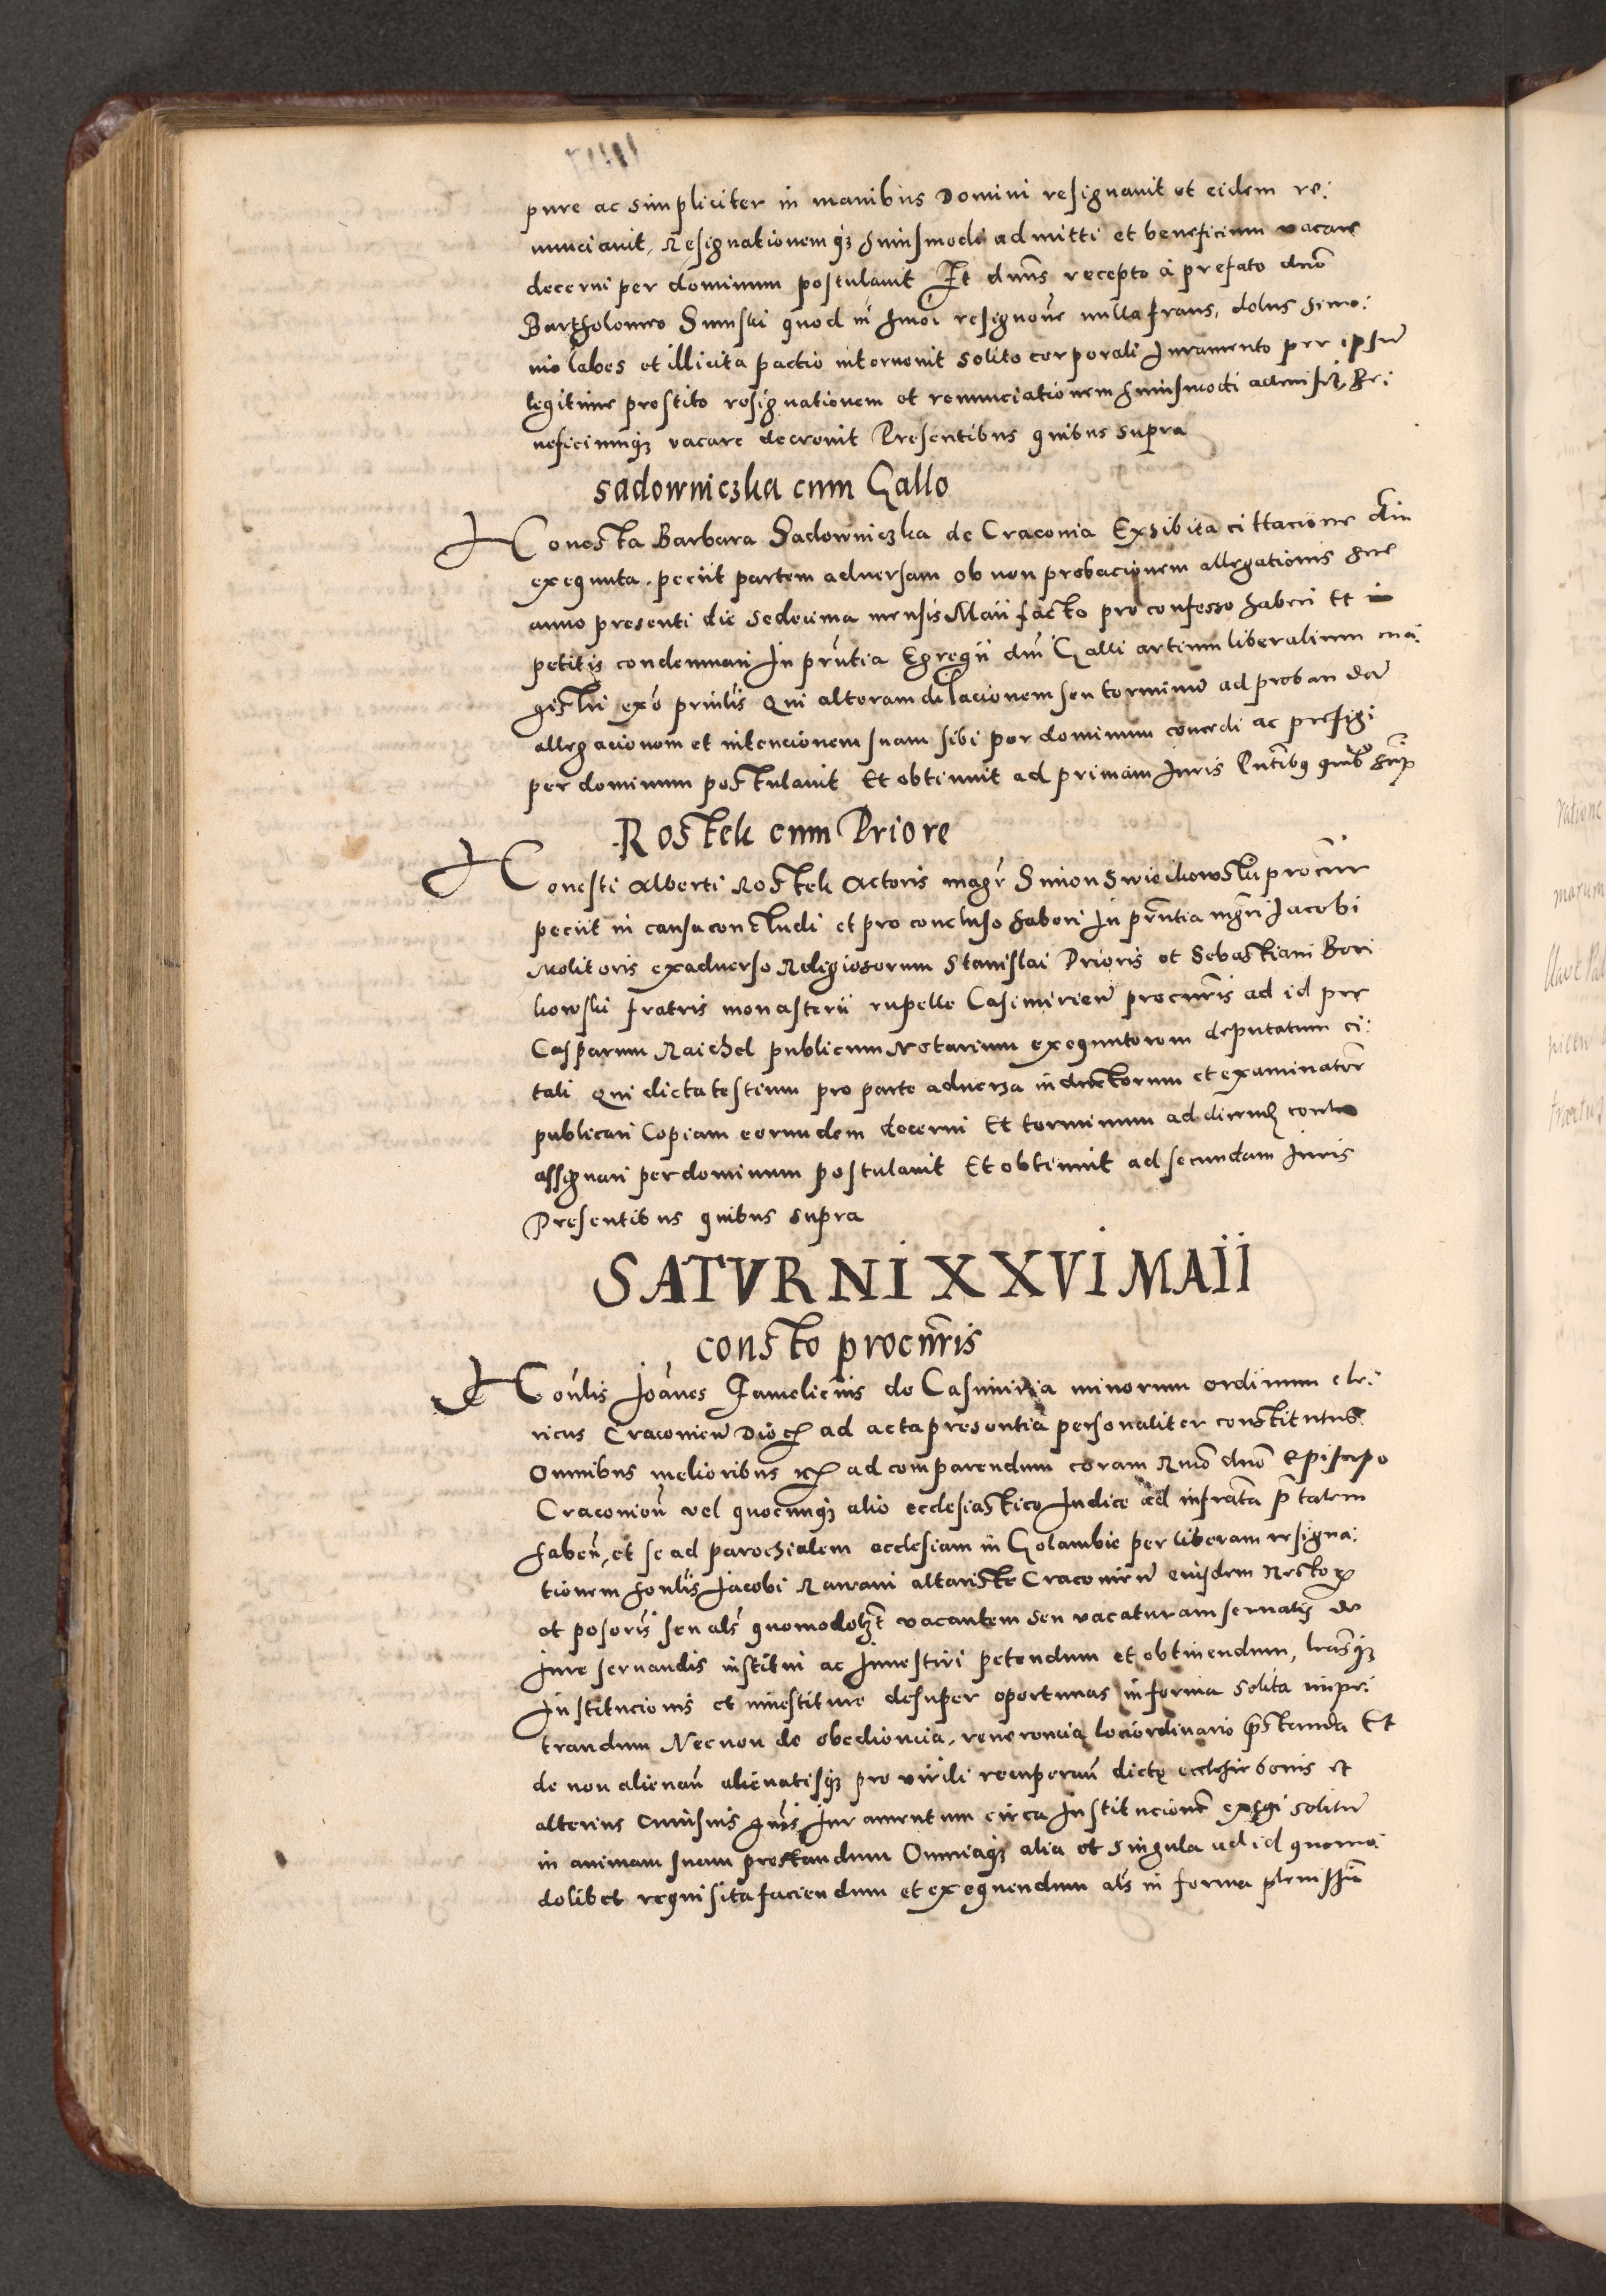 pure ac simpliciter in manibus Domini resignavit et eidem re:
nunciavit, Resignationemqз huiusmodi admitti et beneficium vacare
decerni per dominum postulavit Et dn̄us recepto á prefato dnō
Bartholomeo Sumski quod in hmōi resignōne nulla fraus, dolus simo:
nie labes et illicita pactio intervenit solito corporali Juramento per ipsū
legitime prestito resignationem et renunciationem huiusmodi admisit Be:
neficiumqз vacare decrevit Presentibus quibus supra
Sadowniczka cum Gallo
Honesta Barbara Sadowniczka de Craconia Exhibita cittacione
exequuta. peciit partem adversam ob non probacionem allegationis sue
anno presenti die Sedecima mensis Maii facto pro confesso haberi Et in
petitis condemnari In prn̄tia Egregii dnī Galli artium liberalium ma:
gistri exō prinlis Qui alteram dilacionem seu terminum ad proban dā
allegacionem et intencionem suam sibi per dominum concedi ac prefigi
per dominum postulavit Et obtinuit ad primam Juris Pn̄tibus quibus supra
Rostek cum Priore
Honesti Alberti Rostek Actoris magr̄ Simon Swieikowski procur̄
peciit in causa concludi et pro concluso haberi In prn̄tia mgr̄i Jacobi
Molitoris exadverso Religiosorum Stanislai Prioris et Sebastiani Bori
kowski fratris monasterii rupelle Casimirien̄ procuris ad id per
Casparum Raichel publicum Notarium exequutorem deputatum ci:
tati Qui dicta testium pro parte adversa inductorum et examinator̄
publicari Copiam eorumdem decerni Et terminum ad dicendū contra
assignari per dominum postulavit Et obtinuit ad secundam Juris
Presentibus quibus supra
SATVRNI XXVI MAII
consto procur̄is
Honlis Joānes Gamelicius de Casimiria minorum ordinum cle:
ricus Cracovien̄ Dioc̄ ad acta presentia personaliter constitutus
Omnibus melioribus ad comparendum coram Rmō dnō Episcopo
Cracovien̄ vel quocunqз alio ecclesiastico Judice ad infrāta ptatem
haben̄, et se ad parochialem ecclesiam in Golambie per liberam resigna:
tionem honlis Jacobi Rawani altariste Cracovien̄ eiusdem Rectoris
et posoris seu als quomodolзt vacantem seu vacaturam servatis de
Jure servandis institui ac Investiri petendum et obtinendum, lrasqз
Institucionis et investiture desuper oportunas in forma solita impe:
trandum Necnon de obediencia, reverencia loci ordinario pstanda Et
de non alienan̄ alienatisqз pro virili recuperan̄ dicte ecclesie bonis et
alterius cuiusvis gn̄is Juramentum circa Institucionē exigi solitū
in animam suam prestandum Omniaqз alia et singula ad id quomo:
dolibet requisita faciendum et exequendum als in forma plenissiā